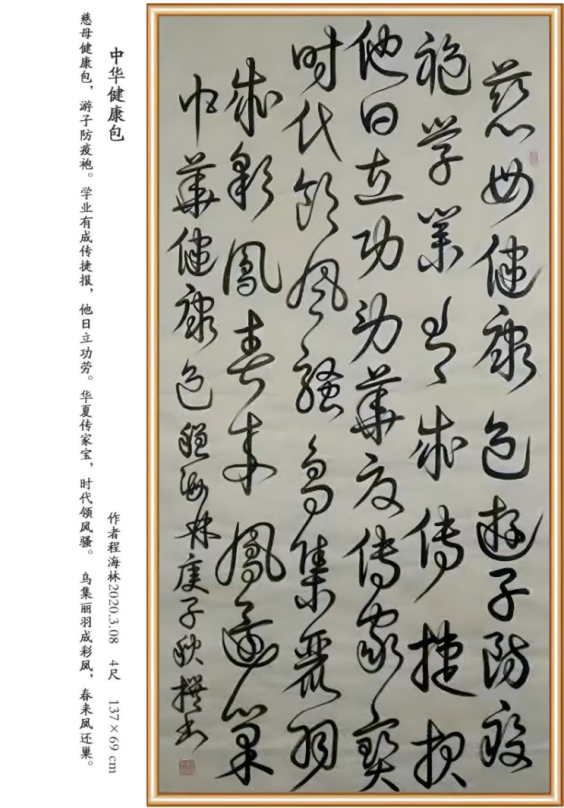 慈母健康包遊子防疫
袍学業有成傳捷报
他日立功劳華夏傳家寶
时代领风骚鸟集麗羽
成彩鳳春来鳳還巢
中華健康包程海林庚子秋撰书
中华健康包
作者程海林2020.3.08 4尺 137×69 cm
慈母健康包，游子防疫袍。学业有成传捷报，他日立功劳。华夏传家宝，时代领风骚。乌集丽羽成彩凤，春来凤还巢。